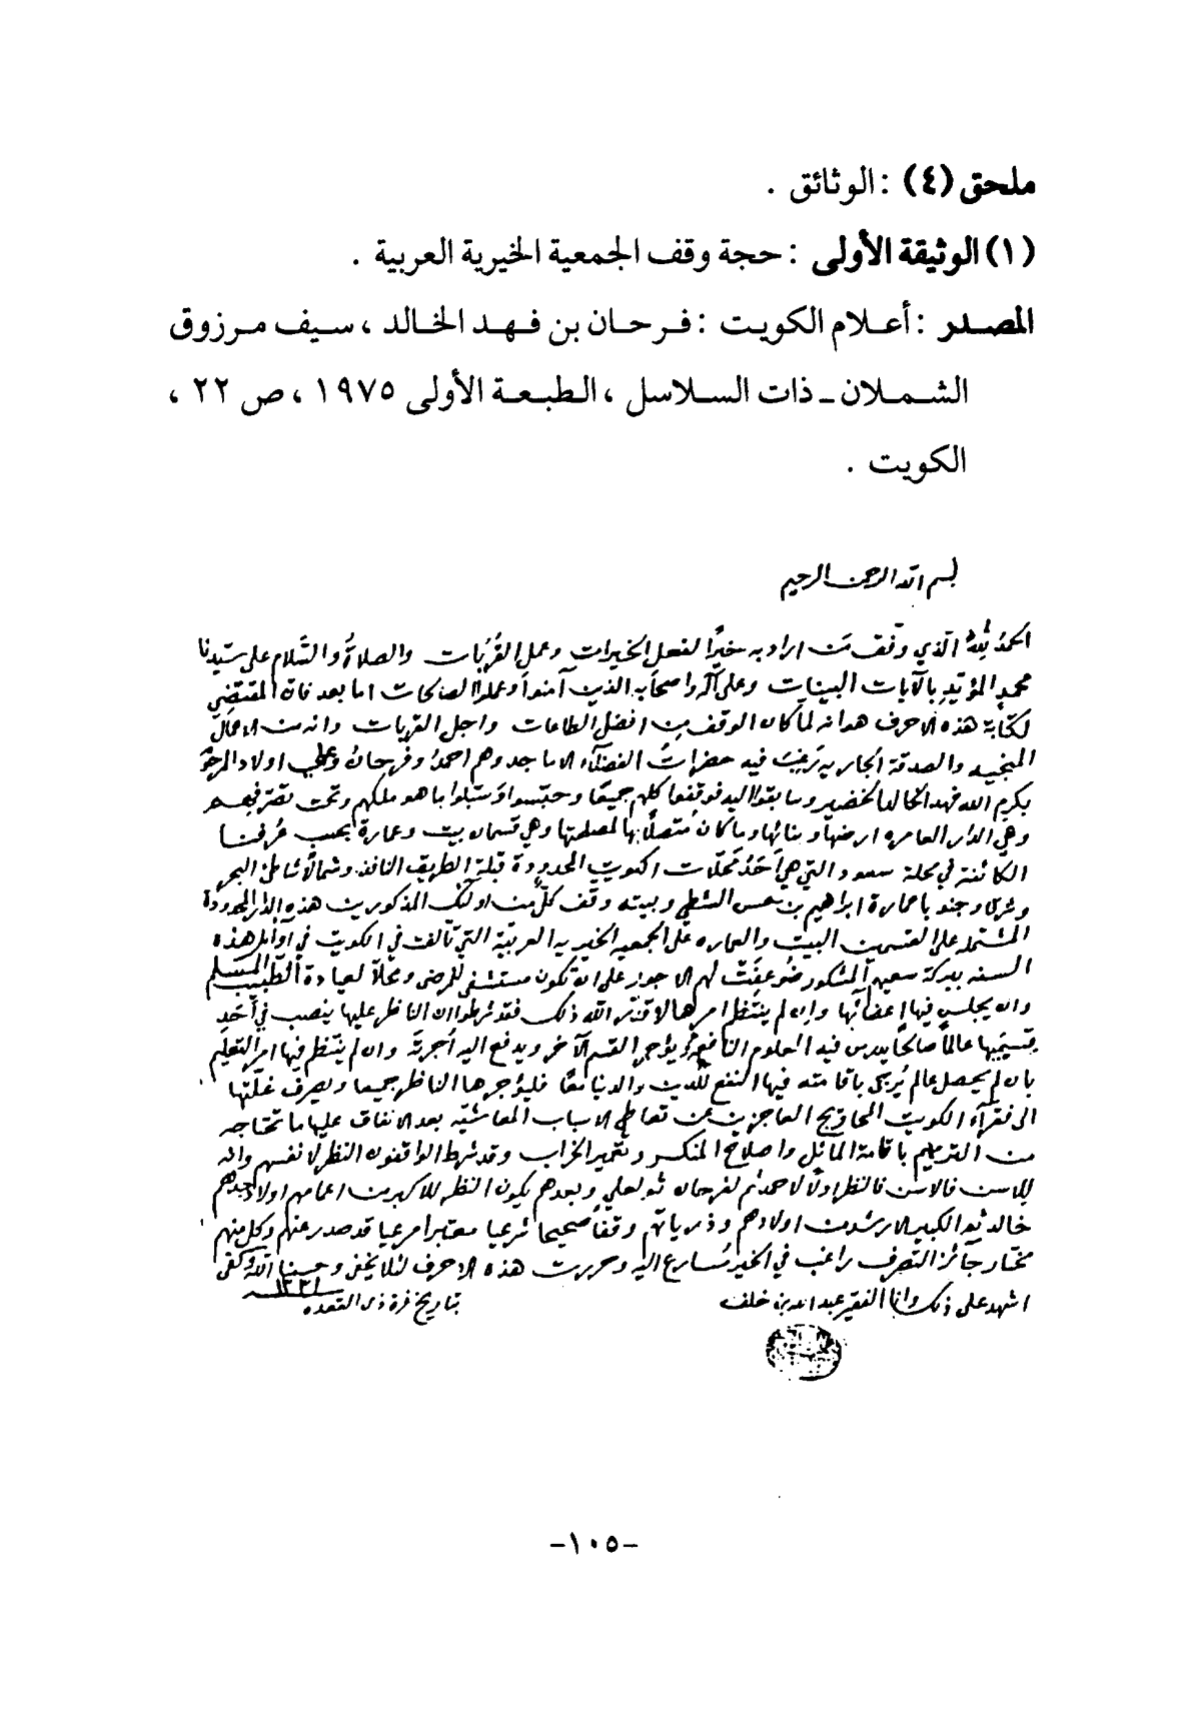 ملحق (٤) : الوثائق .
(١) الوثيقة الأولى : حجة وقف الجمعية الخيرية العربية .
المصدر : أعلام الكويت : فرحان بن فهد الخالد ، سيف مرزوق
الشملان ـ ذات السلاسل ، الطبعة الأولى ١٩٧٥ ، ص ٢٢ ،
الكويت .
بسم الله الرحمن الرحيم
الحمد لله الذي وفق من اراد به خيرًا لفعل الخيرات وعمل القُرُبات والصلاة والسَّلام على سيّدنا
محمدٍ المؤيّدِ بالآيات البينات وعلى آله واصحابه الذين آمنوا وعملوا الصالحات اما بعد فان المقتضي
لكتابة هذه الاحرف هو انه لما كان الوقف من افضل الطاعات واجل القربات وانه من الاعمال
المنجيه والصدقة الجاريه رَغِبَ فيه حضراتُ الفضلاء الاماجد وهم احمدُ وفرحانُ وعلي اولاد المرحوم
بكرم الله فهد الخالد الخضير وسابقوا اليه فوقفوا كلهم جميعًا وحبّسوا وسَبّلوا ما هو ملكهم وتحت تصرفهم
وهي الدّار العامره ارضها وبنائها وما كان مُتصلًا بها لمصلحتها وهي قسمان بيت وعمارة بحسب عُرفنا
الكائنة في محلة سعود التي هي اَحَدُ مَحلّات الكويت المحدودة قبلة الطريق النافذ وشمالًا شاطئ البحر
وشرقا وجنوبا عمارة ابراهيم بن الشطي وبيته وقف كلٌّ من اولئك المذكورين هذه الدار المحدودة
المشتمله على القسمين البيت والعماره على الجمعيه الخيريه العربيّة التي تألّفت في الكويت في أوائل هذه
السنه ببركة سعيهم المشكور ضُوعِفَتْ لهم الاجور على ان تكون مستشفى للمرضى ومحلًا لعيادة الطبيب المسلم
وان يجلس فيها اعضائها وان لم ينتظم امرها لا قدّر الله ذلك فقد شرطوا ان الناظر عليها ينصب في أحَدِ
قسيَميها عالمًا صالحًا يدرس فيه العلوم النافعة ويؤجر القسم الآخر ويدفع اليه أجرته وان لم ينتظم فيها امر التعليم
بان لم يحصل عالم يُرجى باقامته فيها النفع للدين والدنيا معًا فليؤجرها الناظر جميعا ويصرف غلّتها
الى فقراء الكويت المحاويج العاجزين عن تعاطي الاسباب المعاشيّه بعد الانفاق عليها ما تحتاجه
من الترميم باقامة المائل واصلاح المنكسر وتعمير الخراب وقد شرط الواقفون النظر لانفسهم وانه
للاسن فالاسن فالنظر اولًا لاحمد ثم لفرحان ثم لعلي وبعدهم يكون النظر للاكبر من اعمامهم اولاد جدهم
خالد ثم الكبير الارشد من اولادهم وذرياتهم وقفًا صحيحًا شرعيا معتبرا مرعيا قد صدر عنهم وكل منهم
مختار جائز التصرف راغب في الخير مُسارع اليه وحررت هذه الاحرف لئلا يخفى وحسبنا الله وكفى
اشهد على ذلك وانا الفقير عبد الله بن خلف
بتاريخ غرة ذي القعده ١٣٣١
-١٠٥-